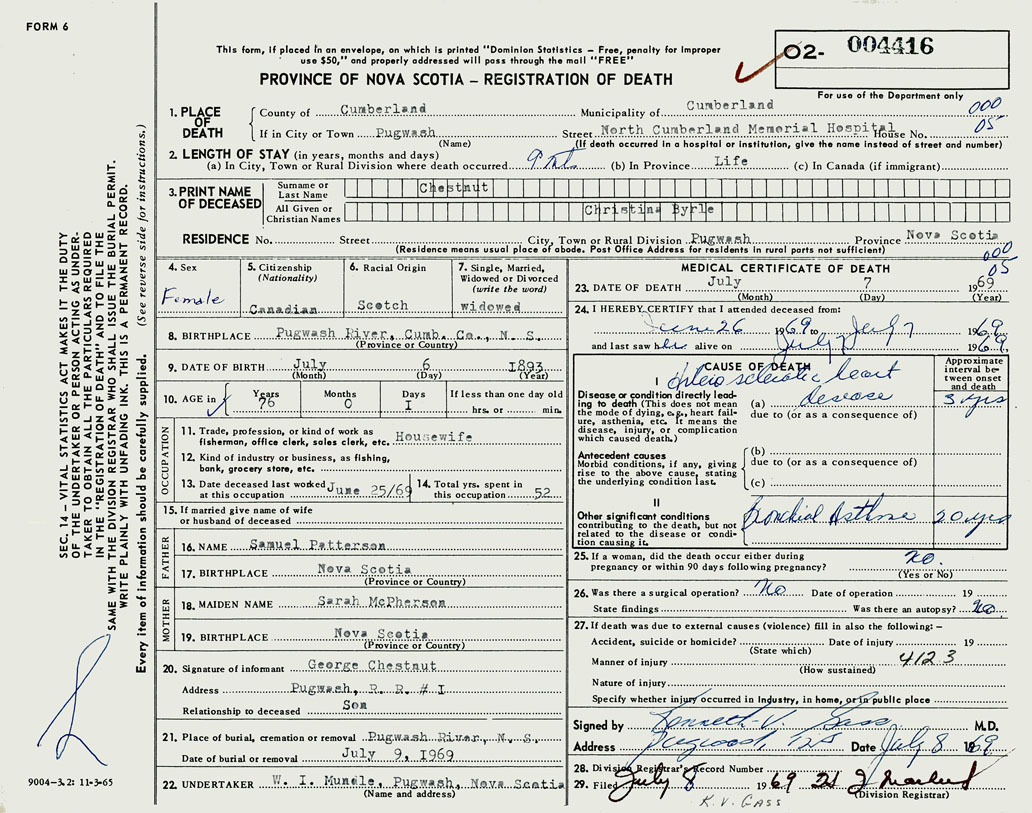 FORM 6
This form, if placed in an envelope, on which is printed "Dominion Statistics – Free, penalty for improper
use $50," and properly addressed will pass through the mail "FREE"
O2- 004416
PROVINCE OF NOVA SCOTIA – REGISTRATION OF DEATH
For use of the Department only
1. PLACE OF DEATH
County of Cumberland Municipality of Cumberland 000
If in City or Town Pugwash Street North Cumberland Memorial Hospital House No. 05
(Name) (If death occurred in a hospital or institution, give the name instead of street and number)
2. LENGTH OF STAY (in years, months and days)
(a) In City, Town or Rural Division where death occurred (b) In Province Life (c) In Canada (if immigrant)
3. PRINT NAME OF DECEASED
Surname or Last Name Chestnut
All Given or Christian Names Christina Byrle
RESIDENCE No. Street City, Town or Rural Division Pugwash Province Nova Scotia
(Residence means usual place of abode. Post Office Address for residents in rural parts not sufficient)
000
05
4. Sex Female
5. Citizenship (Nationality) Canadian
6. Racial Origin Scotch
7. Single, Married, Widowed or Divorced (write the word) widowed
8. BIRTHPLACE Pugwash River, Cumb. Co., N. S.
(Province or Country)
9. DATE OF BIRTH July 6 1893
(Month) (Day) (Year)
10. AGE in Years 76 Months 0 Days I If less than one day old hrs. or min.
OCCUPATION
11. Trade, profession, or kind of work as fisherman, office clerk, sales clerk, etc. Housewife
12. Kind of industry or business, as fishing, bank, grocery store, etc.
13. Date deceased last worked at this occupation June 25/69
14. Total yrs. spent in this occupation 52
15. If married give name of wife or husband of deceased
FATHER
16. NAME Samuel Patterson
17. BIRTHPLACE Nova Scotia
(Province or Country)
MOTHER
18. MAIDEN NAME Sarah McPherson
19. BIRTHPLACE Nova Scotia
(Province or Country)
20. Signature of informant George Chestnut
Address Pugwash, R. R. # I
Relationship to deceased Son
21. Place of burial, cremation or removal Pugwash River, N. S.
Date of burial or removal July 9, 1969
22. UNDERTAKER W. I. Mundle, Pugwash, Nova Scotia
(Name and address)
MEDICAL CERTIFICATE OF DEATH
23. DATE OF DEATH July 7 1969
(Month) (Day) (Year)
24. I HEREBY CERTIFY that I attended deceased from:
June 26 1969 to July 7 1969
and last saw her alive on July 7 1969.
CAUSE OF DEATH
Approximate interval between onset and death
I
Disease or condition directly leading to death (This does not mean the mode of dying, e.g., heart failure, asthenia, etc. It means the disease, injury, or complication which caused death.)
(a) Arteriosclerotic heart desease 3 yrs
due to (or as a consequence of)
Antecedent causes
Morbid conditions, if any, giving rise to the above cause, stating the underlying condition last.
(b)
due to (or as a consequence of)
(c)
II
Other significant conditions contributing to the death, but not related to the disease or condition causing it.
Bronchial Asthma 20 yrs
25. If a woman, did the death occur either during pregnancy or within 90 days following pregnancy? No.
(Yes or No)
26. Was there a surgical operation? No Date of operation 19
State findings Was there an autopsy? No.
27. If death was due to external causes (violence) fill in also the following: –
Accident, suicide or homicide? Date of injury 19
(State which)
Manner of injury 4123
(How sustained)
Nature of injury
Specify whether injury occurred in Industry, in home, or in public place
Signed by Kenneth V. Gass M.D.
Address Pugwash, N.S. Date July 8 1969
28. Division Registrar's Record Number
29. Filed July 8 1969 21
(Division Registrar)
K. V. GASS
SEC. 14 – VITAL STATISTICS ACT MAKES IT THE DUTY
OF THE UNDERTAKER OR PERSON ACTING AS UNDER-
TAKER TO OBTAIN ALL THE PARTICULARS REQUIRED
IN THE "REGISTRATION OF DEATH" AND TO FILE THE
SAME WITH THE DIVISION REGISTRAR WHO SHALL ISSUE THE BURIAL PERMIT.
WRITE PLAINLY WITH UNFADING INK. THIS IS A PERMANENT RECORD.
Every item of information should be carefully supplied. (See reverse side for instructions.)
9004–3.2: 11-3-65